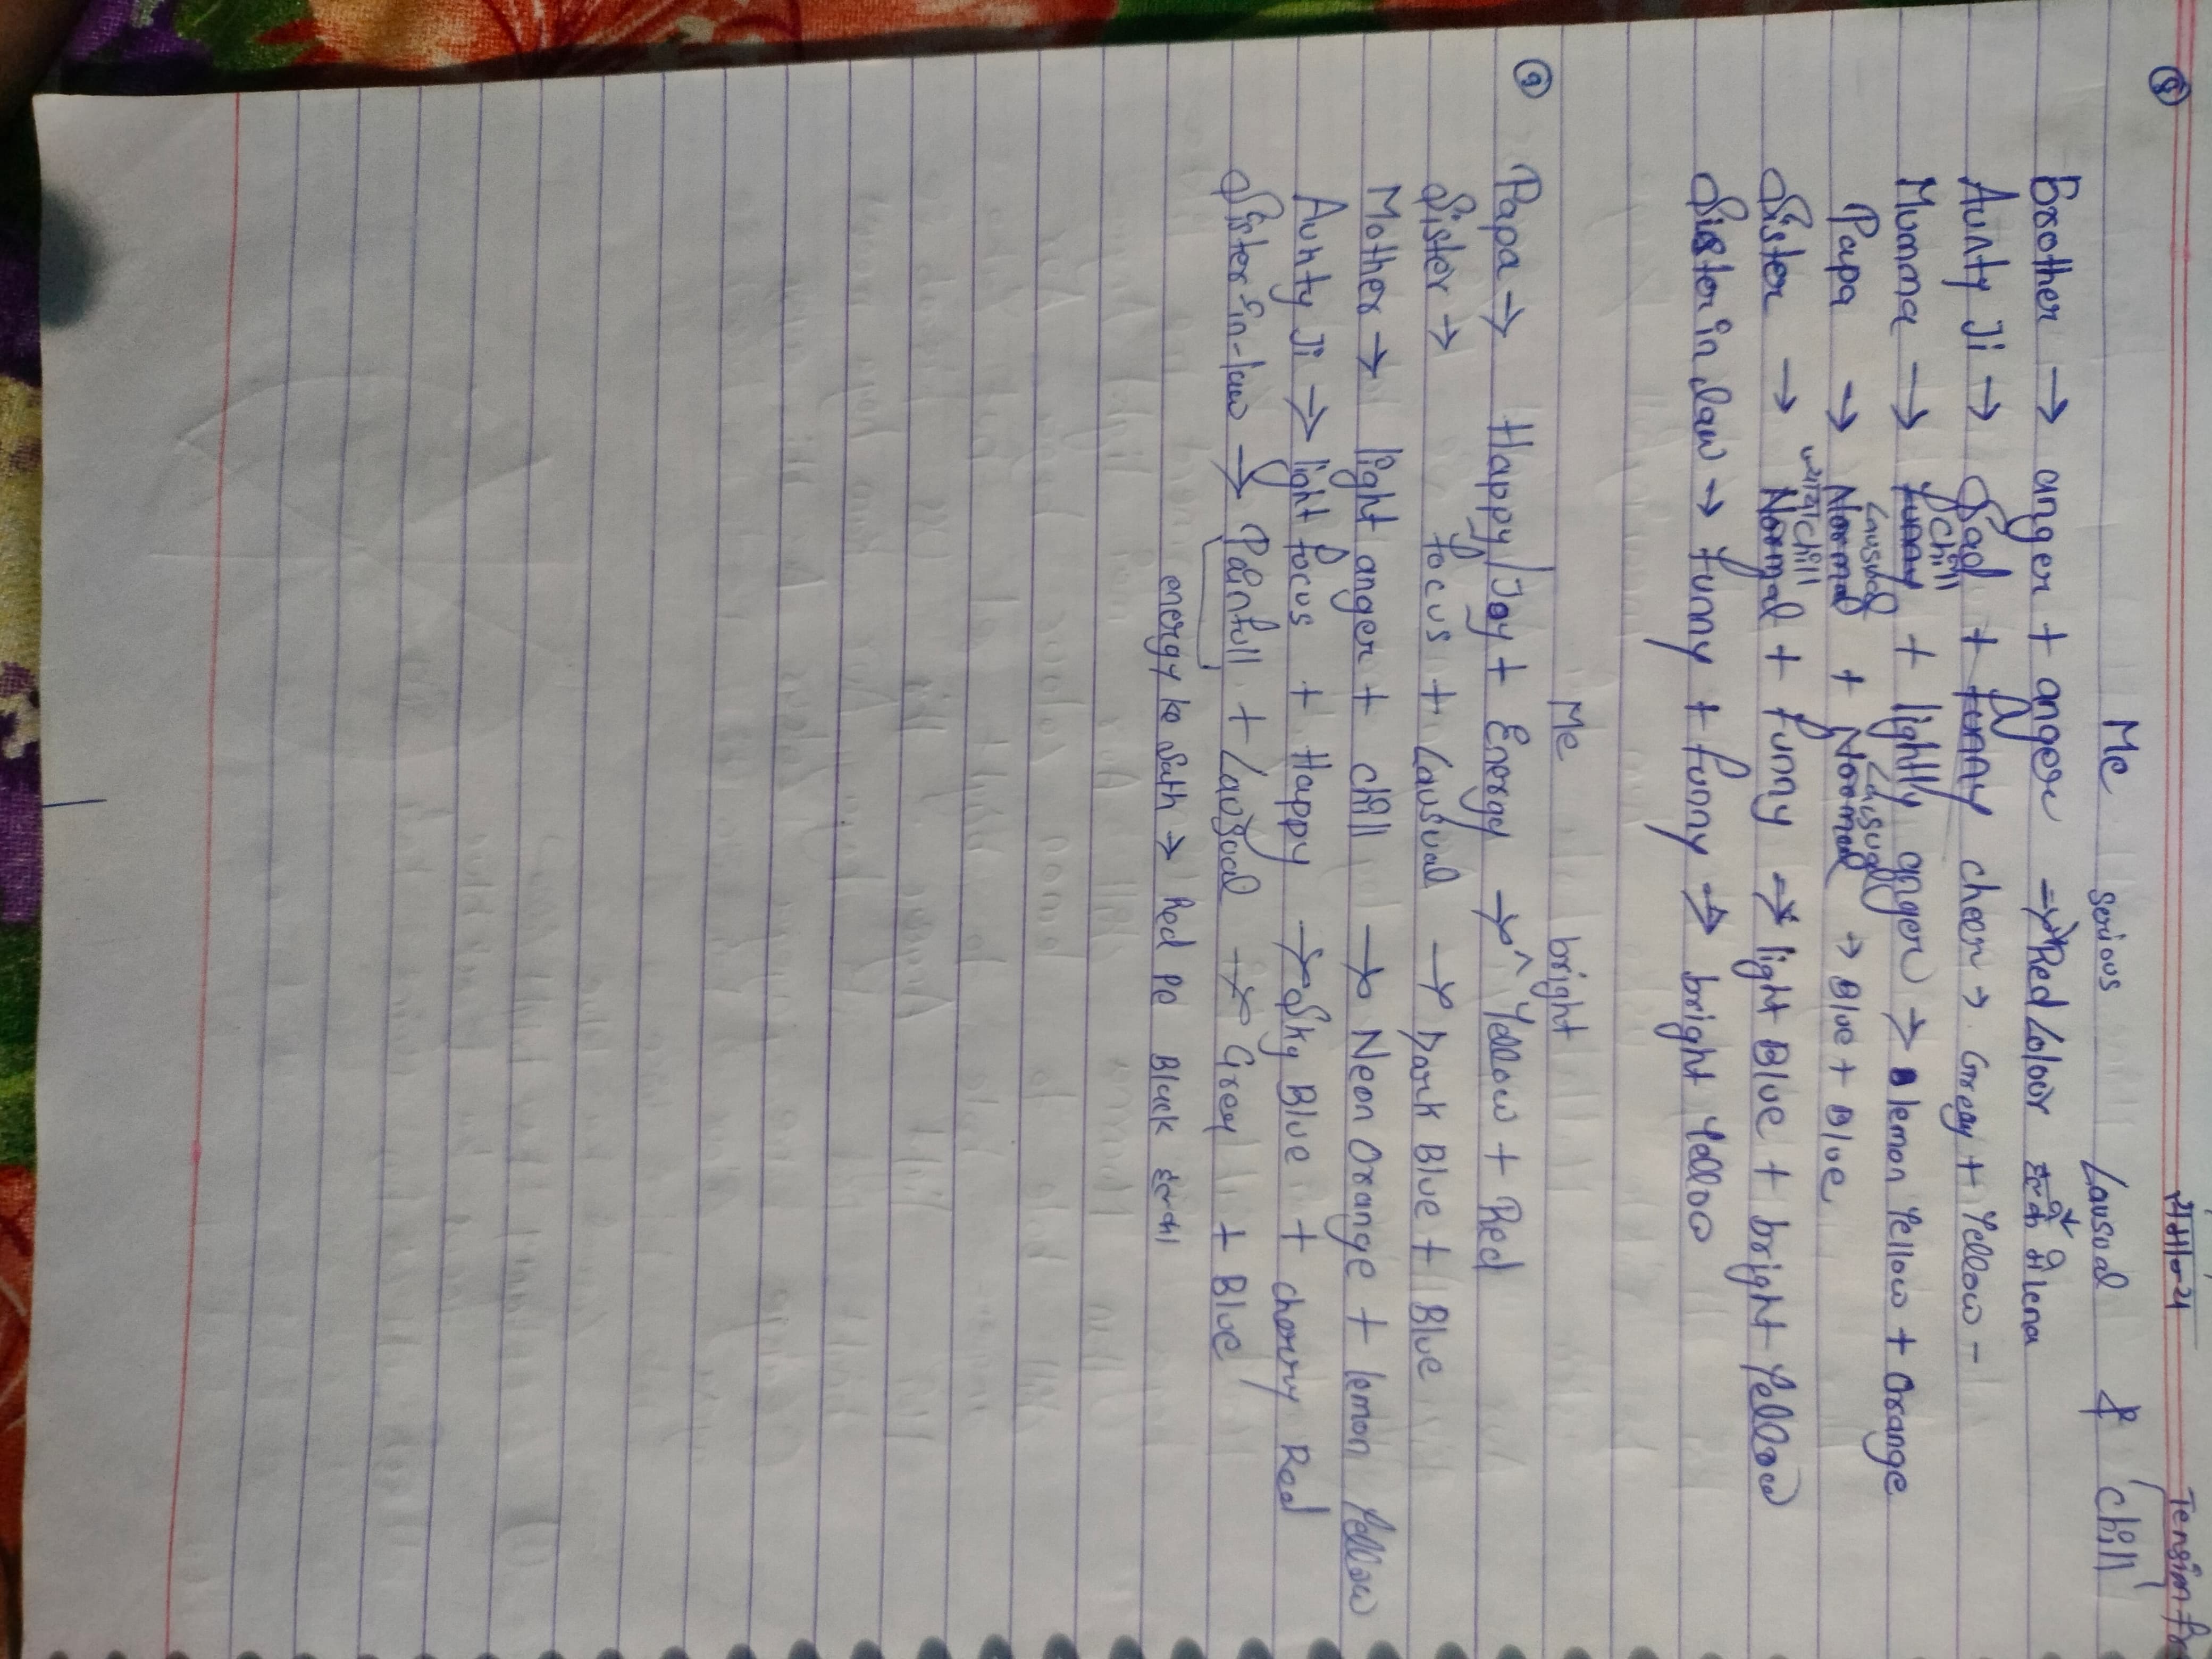 सामान्य Tension fr
⑧ Me serious Causual & chill
Brother → anger + anger ⇒ Red Colour में मिलना
Aunty Ji → Sad + funny cheer → Grey + Yellow -
chill
Mumma → funny + lightly anger → lemon Yellow + Orange
Causual Causual
Papa → Normal + Normal → Blue + Blue
chill
Sister → Normal + funny → light Blue + bright Yellow
Sister in law → funny + funny → bright Yelloo
Me bright
⑨ Papa → Happy/Joy + Energy → ^ Yellow + Red
Sister → focus + Causual → Dark Blue + Blue
Mother → light anger + chill → Neon Orange + lemon Yellow
Aunty Ji → light focus + Happy → Sky Blue + cherry Red
Sister-in-law → Painfull + Causual → Grey + Blue
energy ke sath → Red pe Black करना